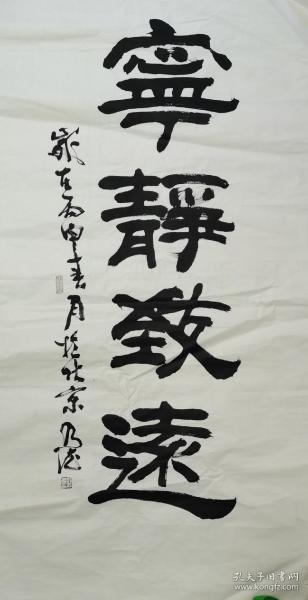 寧靜致遠
歲在丙申春月於北京
孔夫子旧书网